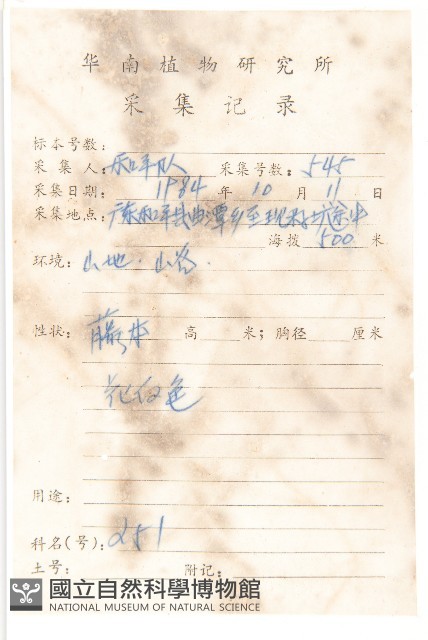 华南植物研究所
采集记录
标本号数：
采集人：和平队 采集号数：545
采集日期： 1984 年 10 月 11 日
采集地点：广东和平县曲潭乡至 途中
海拨 500 米
环境：山地．山谷．
性状：藤本 高 米；胸径 厘米
花红色
用途：
科名(号)：251
土号： 附记：
國立自然科學博物館
NATIONAL MUSEUM OF NATURAL SCIENCE